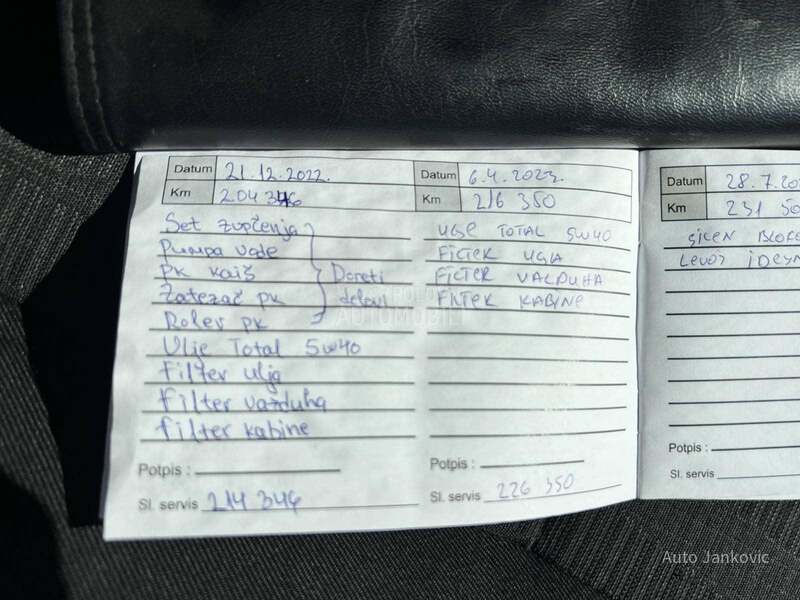 Datum 21.12.2022.
Km 204 346
Set zupčenja
Pumpa vode
PK kaiš
Zatezač pk
Roler pk
Doneti
delovi
Ulje Total 5w40
filter ulja
filter vazduha
filter kabine
Potpis :
Sl. servis 214 346
Datum 6.4.2023.
Km 216 350
ULJE TOTAL 5W40
FILTER ULJA
FILTER VAZDUHA
FILTER KABINE
Potpis :
Sl. servis 226 350
Datum 28.7.20
Km 231 50
Potpis :
Sl. servis
Auto Jankovic